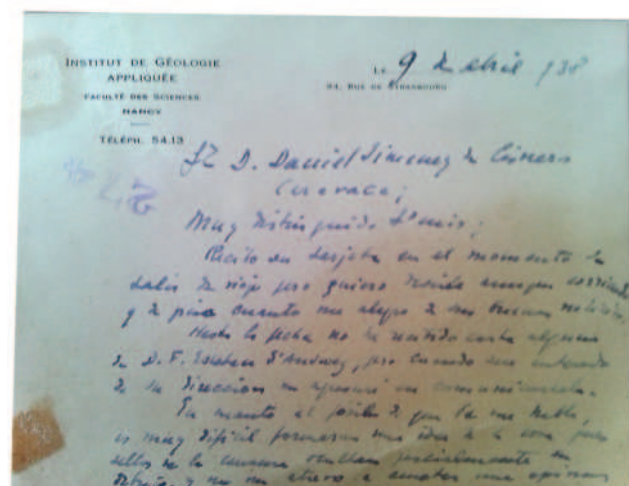 INSTITUT DE GÉOLOGIE
APPLIQUÉE
FACULTÉ DES SCIENCES
NANCY
TÉLÉPH. 54.13
LE 9 de abril 938
94, RUE DE STRASBOURG
Sr D. Daniel Jimenez de Cisneros
Caravaca;
Muy distinguido Sr mio;
Recibo su tarjeta en el momento de
salir de viaje pero quiero decirle aunque
y de prisa cuanto me alegro de sus buenas noticias.
Hasta la fecha no he recibido carta alguna
de D. F. Esteban pero cuando sea enterado
de su direccion me apresuré en comunicarsela.
En cuanto al fosil de que Vd me habla,
es muy dificil formarse una idea de la cosa pues
sellos de la censura ocultan parcialmente su
y no me atrevo a emitir una opinion